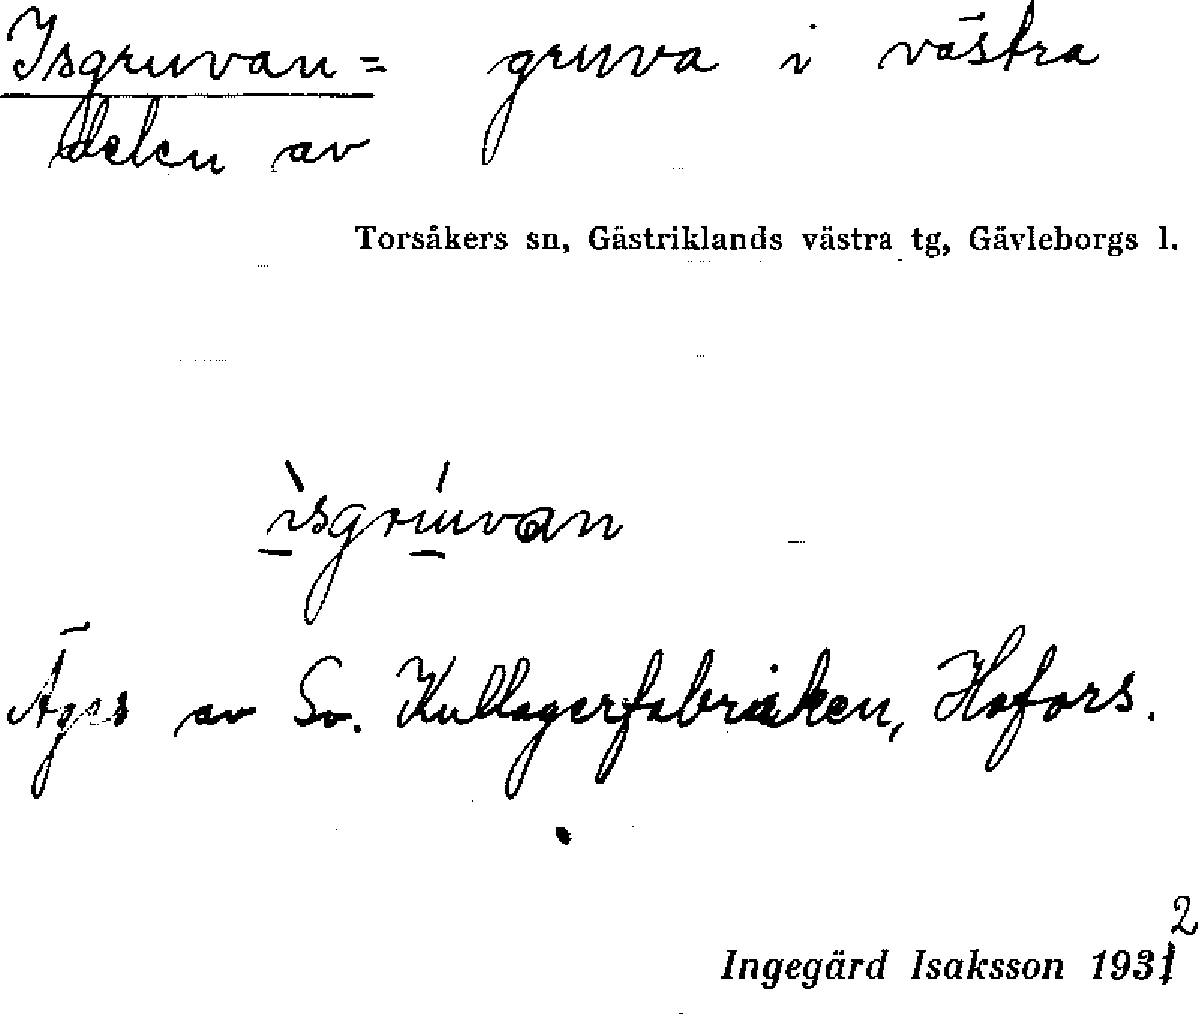 Isgruvan = gruva i västra
delen av
Torsåkers sn, Gästriklands västra tg, Gävleborgs l.
ìsgrúvan
Äges av Sv. Kullagerfabriken, Hofors.
2
Ingegärd Isaksson 1931